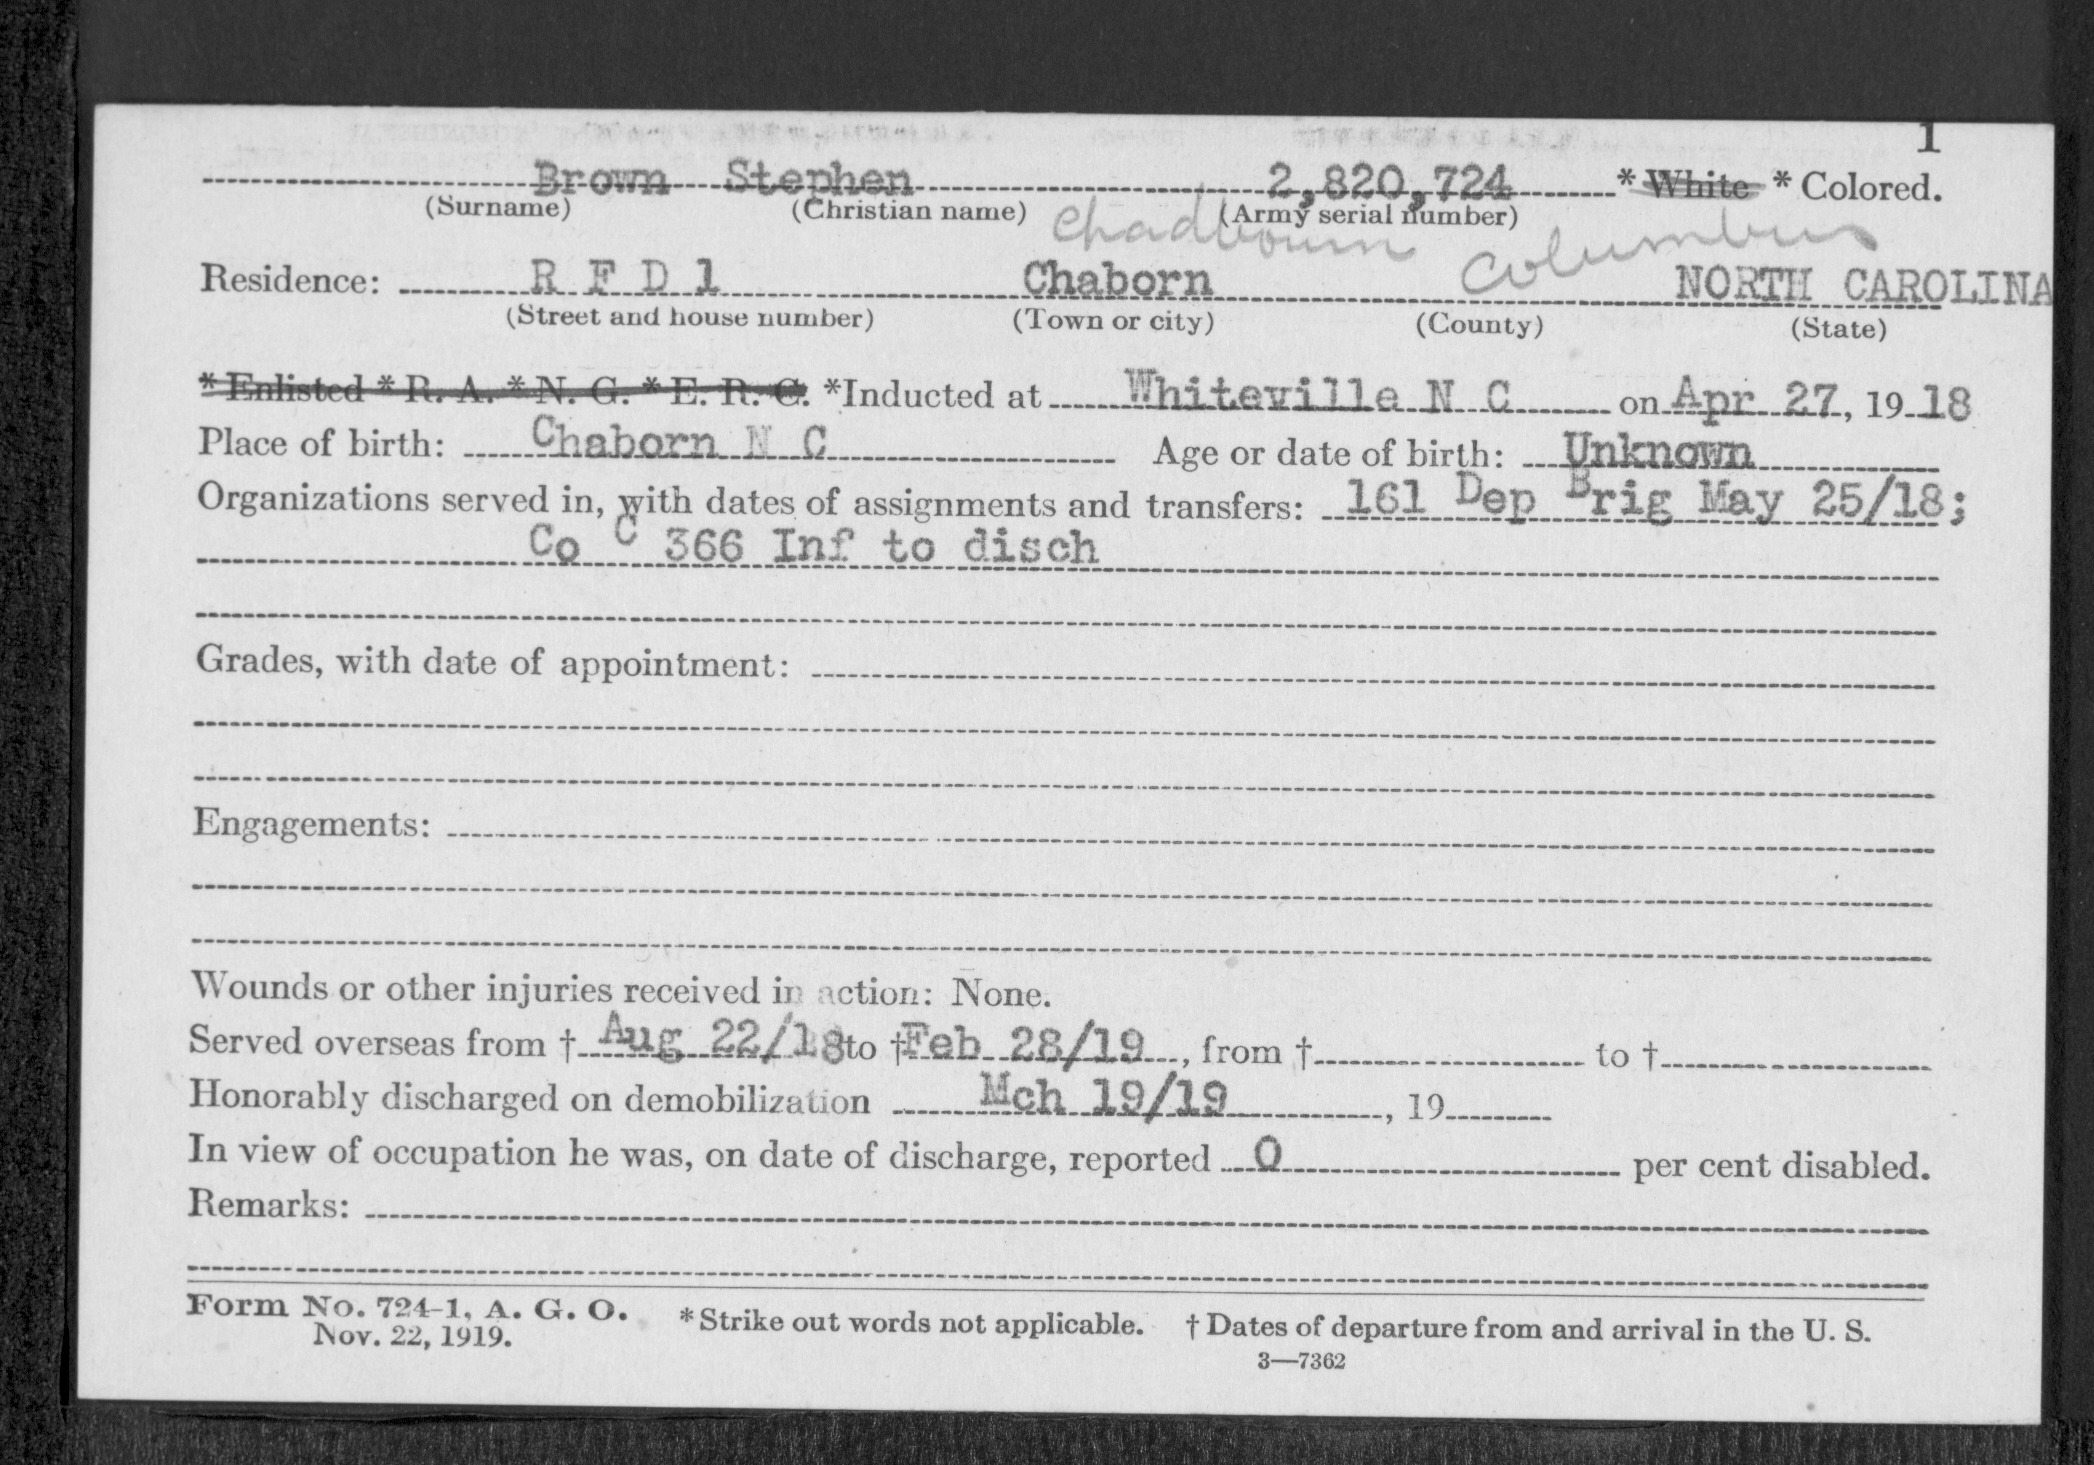 1
Brown Stephen 2,820,724 * White * Colored.
(Surname) (Christian name) (Army serial number)
Chadbourn Columbus
Residence: R F D 1 Chaborn NORTH CAROLINA
(Street and house number) (Town or city) (County) (State)
* Enlisted * R. A. * N. G. * E. R. C. *Inducted at Whiteville N C on Apr 27, 19 18
Place of birth: Chaborn N C Age or date of birth: Unknown
Organizations served in, with dates of assignments and transfers: 161 Dep Brig May 25/18;
Co C 366 Inf to disch
Grades, with date of appointment:
Engagements:
Wounds or other injuries received in action: None.
Served overseas from † Aug 22/18 to † Feb 28/19, from † to †
Honorably discharged on demobilization Mch 19/19, 19
In view of occupation he was, on date of discharge, reported 0 per cent disabled.
Remarks:
Form No. 724-1, A. G. O. * Strike out words not applicable. † Dates of departure from and arrival in the U. S.
Nov. 22, 1919.
3—7362